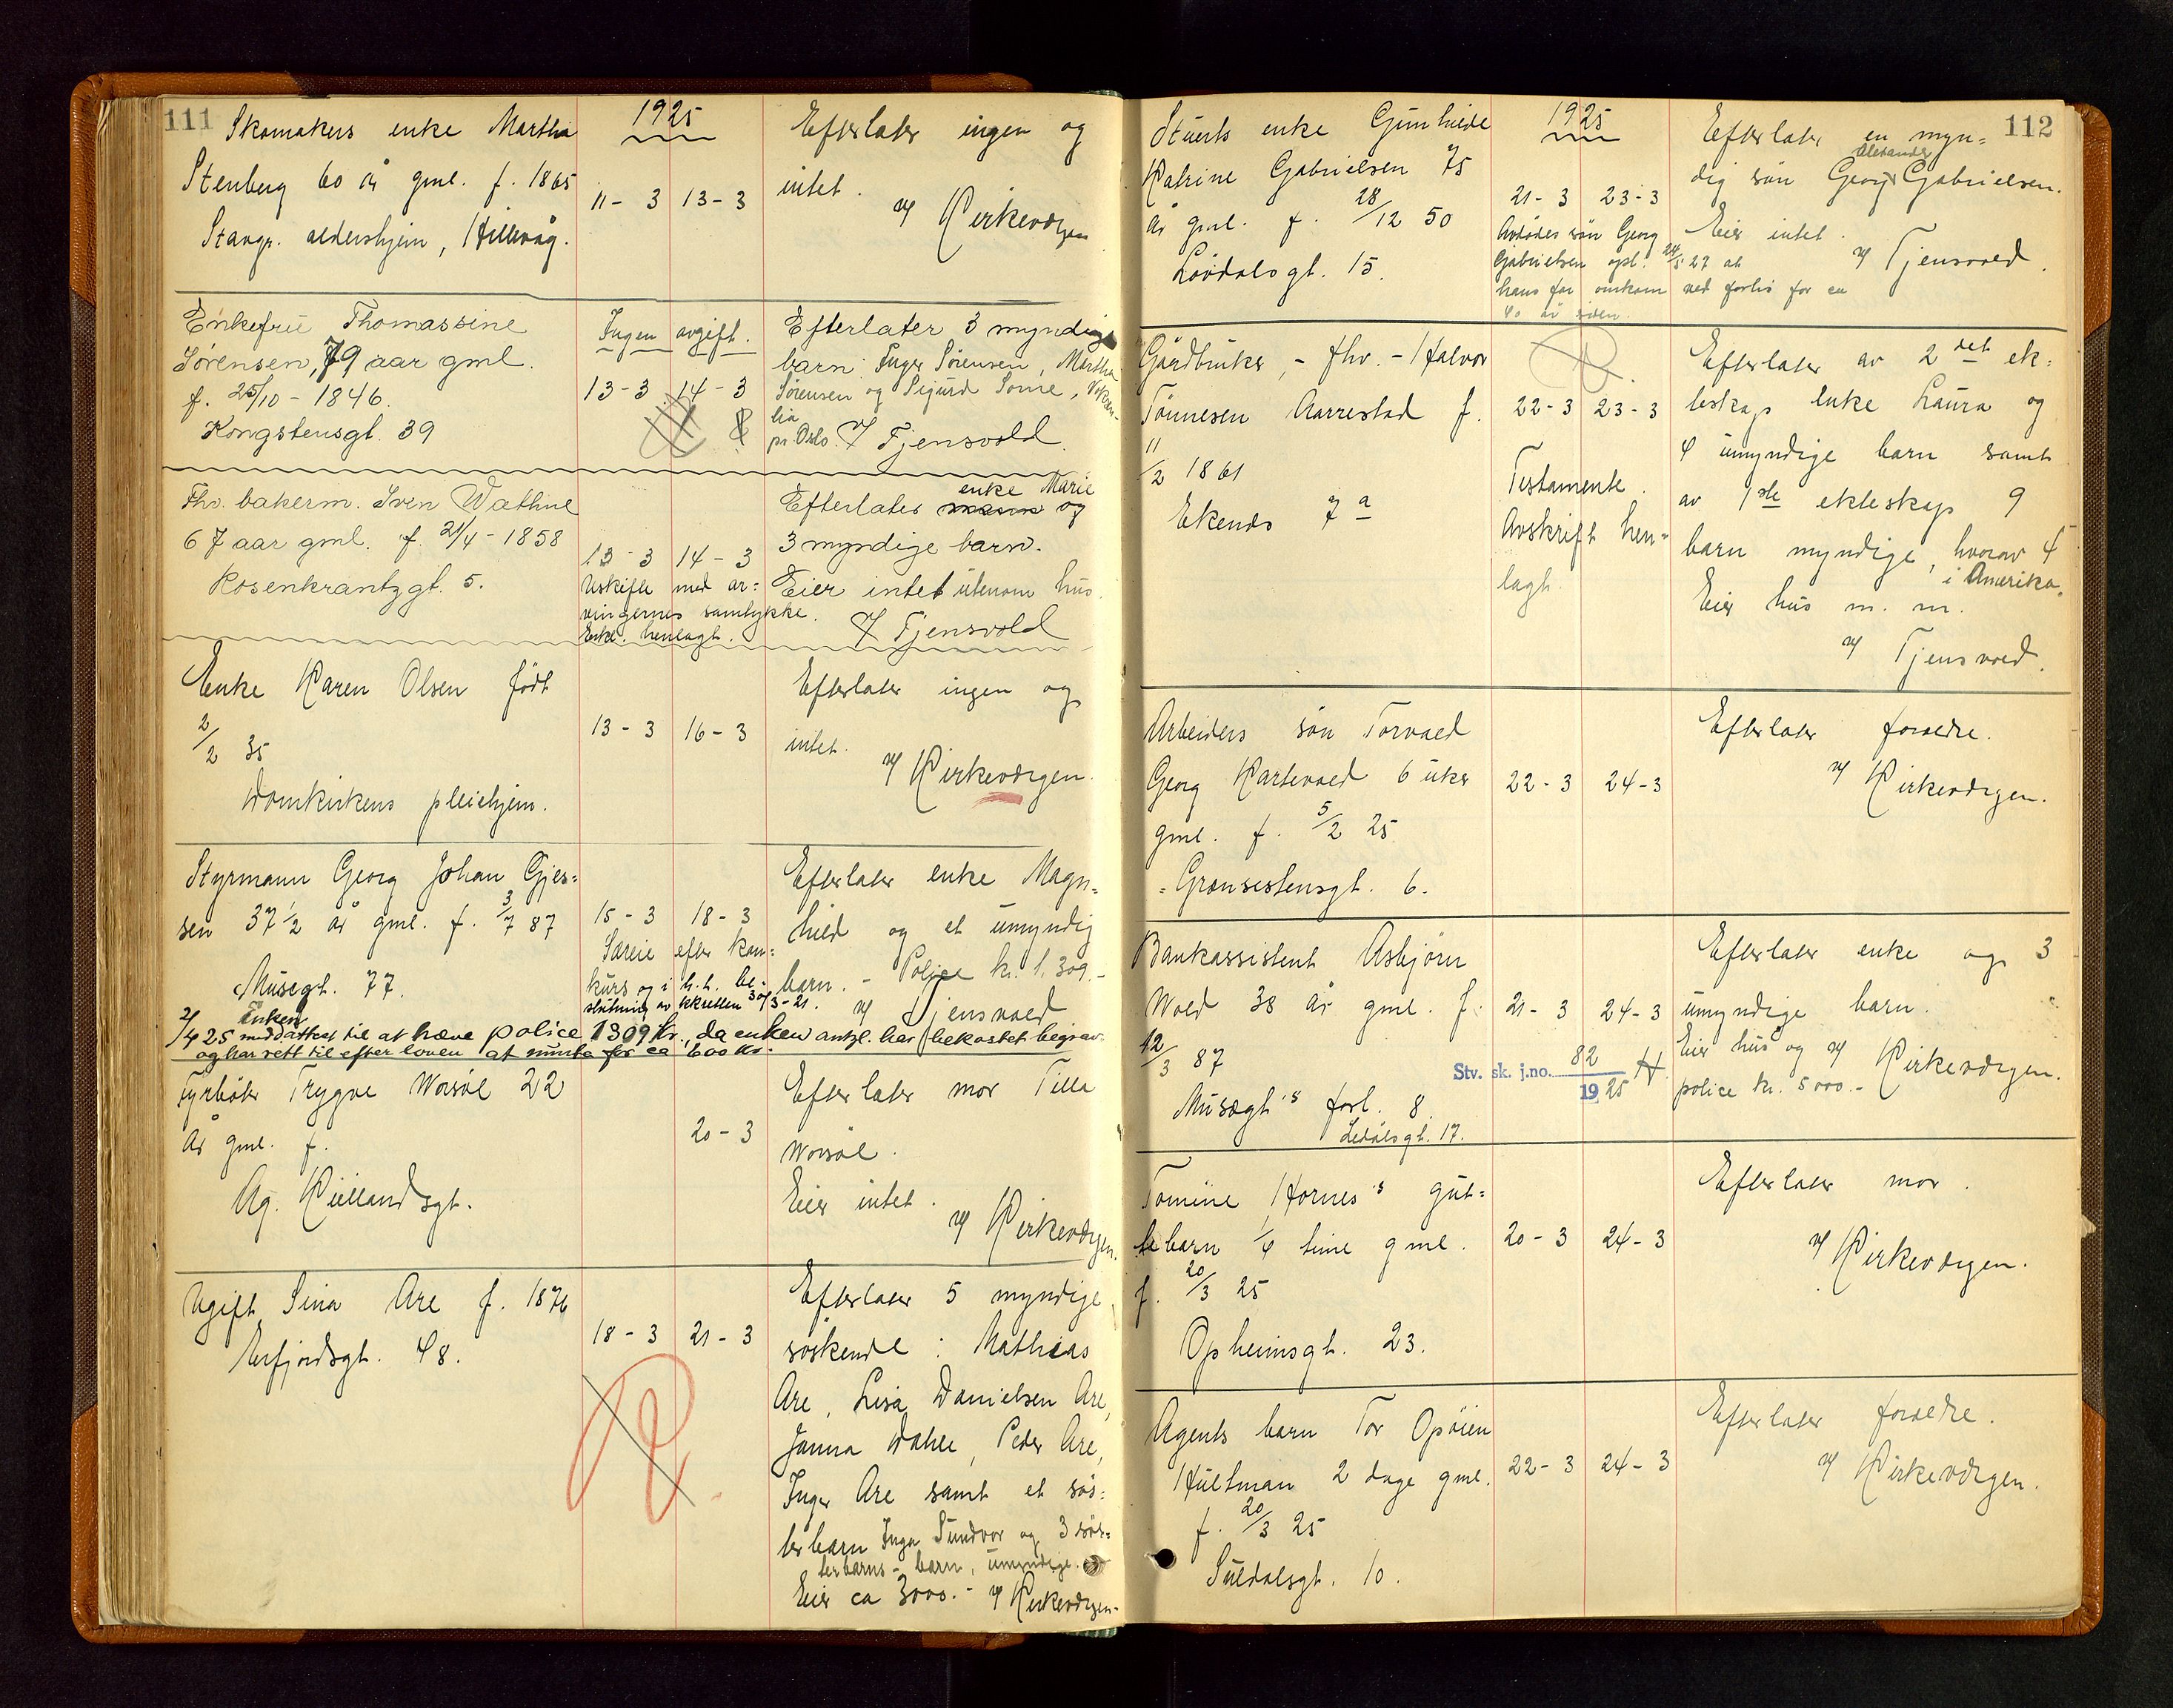 111
Skomakers enke Martha
Stenberg 60 år gml. f. 1865
Stavgr. aldershjem, Hillevåg.
1925
11-3 13-3
Efterlater ingen og
intet.
Kirkevergen
Enkefru Thomassine
Sørensen, 79 aar gml.
f. 25/10 - 1846.
Kongstensgt. 39
Ingen avgift.
13-3 14-3
Efterlater 3 myndige
barn: Inger Sørensen, Martha
Sørensen og Sigurd Sørne,
lia
pr. Oslo. Tjensvold.
Fhv. bakerm. Sven Wathne
67 aar gml. f. 21/4 - 1858
Rosenkrantzgt. 5.
13-3 14-3
Uskifte med ar=
vingernes samtykke.
Erkl. henlagt.
Efterlater mann enke Marie og
3 myndige barn.
Eier intet utenom hus.
Tjensvold
Enke Karen Olsen født
2/2 35
Domkirkens pleiehjem.
13-3 16-3
Efterlater ingen og
intet.
Kirkevergen.
Styrmann Georg Johan Gjes=
sen 37 1/2 år gml. f. 3/7 87
Musegt. 77.
15-3 18-3
Særeie efter kon=
kurs og i h.t. be=
slutning av skkretten 30/3-21.
Efterlater enke Magn=
hild og et umyndig
barn. - Police kr. 1.309.-
Tjensvold
2/4 25 enken meddelt att. til at hæve police 1309 kr., da enken antgl. har bekostet begrav.
og har rett til efter loven at nytte for ca 600 kr.
Fyrbøter Trygve Worsøl 22
år gml. f.
Ag. Kiellandsgt.
20-3
Efterlater mor Tilla
Worsøl.
Eier intet.
Kirkevergen.
Ugift Sina Are f. 1876
Erfjordsgt. 48.
18-3 21-3
Efterlater 5 myndige
søskende: Mathias
Are, Lisa Danielsen Are,
Janna Dahle, Peder Are,
Inger Are samt et søs=
terbarn Inga Sundvor og 3 søs=
terbarns-barn, umyndige.
Eier ca 3000.- Kirkevergen.
112
Stuerts enke Gunhilde
Katrine Gabrielsen 75
år gml. f. 28/12 50
Løvdalsgt. 15.
1925
21-3 23-3
Avdødes søn Georg
Gabrielsen opl. 24/5 27 at
hans far omkom ved forlis for ca
40 år siden.
Efterlater en myn=
dig søn Georg Alexander Gabrielsen.
Eier intet.
Tjensvold.
Gårdbruker, - fhv. - Halvor
Tønnesen Aarrestad f.
11/2 1861
Ekends 7 a
22-3 23-3
Testamente.
Avskrift hen=
lagt.
Efterlater av 2det ek=
teskap enke Laura og
4 umyndige barn samt
av 1ste ekteskap 9
barn myndige, hvorav 4
i Amerika.
Eier hus m. m.
Tjensvold.
Arbeiders søn Torvald
Georg Kartevold 6 uker
gml. f. 5/2 25
Grønsestensgt. 6.
22-3 24-3
Efterlater foreldre.
Kirkevergen.
Bankassistent Asbjørn
Wold 38 år gml. f.
12/3 87
Musægt's forl. 8.
Ledålsgt. 17.
21-3 24-3
Stv. sk. j.no. 82
1925
Efterlater enke og 3
umyndige barn.
Eier hus og
police kr. 5000.- Kirkevergen.
Tomine Hornes's gut=
tebarn 1/4 time gml.
f. 20/3 25
Opheimsgt. 23.
20-3 24-3
Efterlater mor.
Kirkevergen.
Agents barn Tor Opøien
Hultman 2 dage gml.
f. 20/3 25
Suldalsgt. 10.
22-3 24-3
Efterlater foreldre.
Kirkevergen.